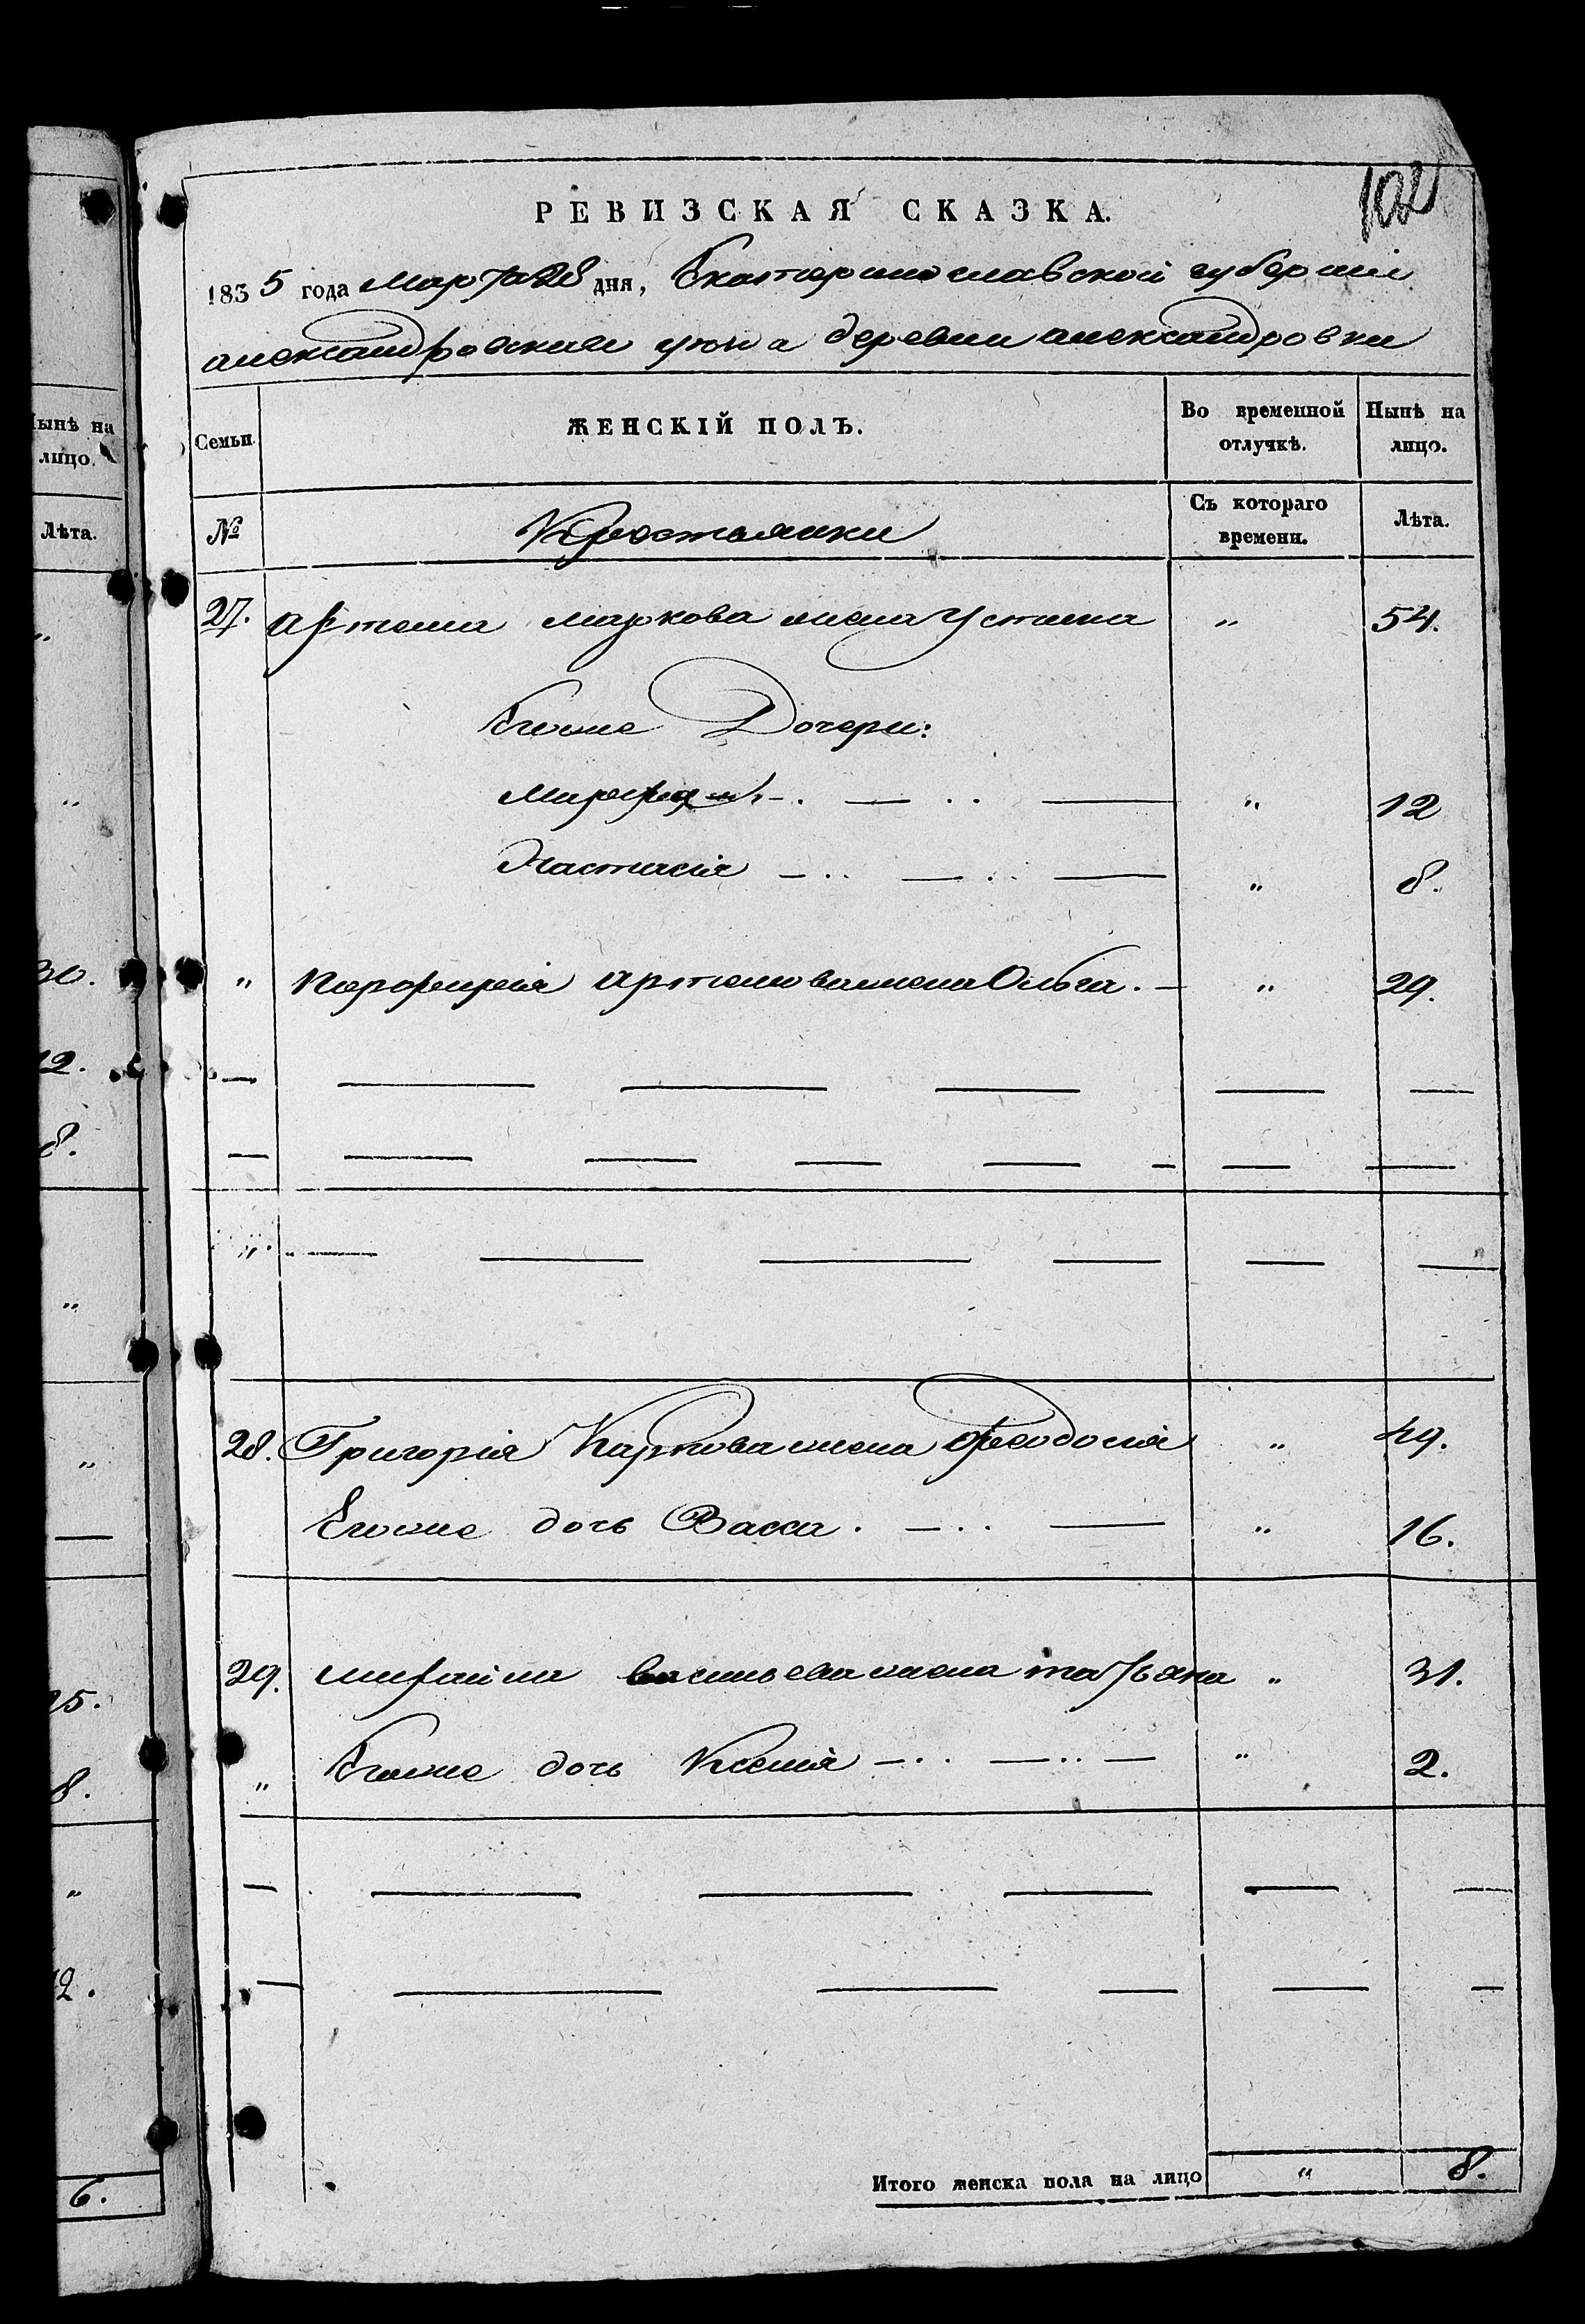 102
РЕВИЗСКАЯ СКАЗКА.
1835 года Марта 28 дня, Екатеринославской губерніи
александровскаго уезда деревни александровки
Нынѣ на
лицо.
Лѣта.
Семьи
ЖЕНСКІЙ ПОЛЪ.
Во временной отлучкѣ.
Нынѣ на лицо.
№
Крестьянки
Съ котораго времени.
Лѣта.
27. артема маркова жена Устина " 54.
Егоже Дочери:
" 12
Настасія " 8.
" Порфирія артемова жена Ольга. " 29.
28. Григорія Карпова жена Феодосія " 49.
Егоже дочь Васса. " 16.
29. михаила васильева жена татьяна " 31.
" Егоже дочь Ксенія " 2.
Итого женска пола на лицо " 8.
30.
12.
8.
25.
8.
12.
6.